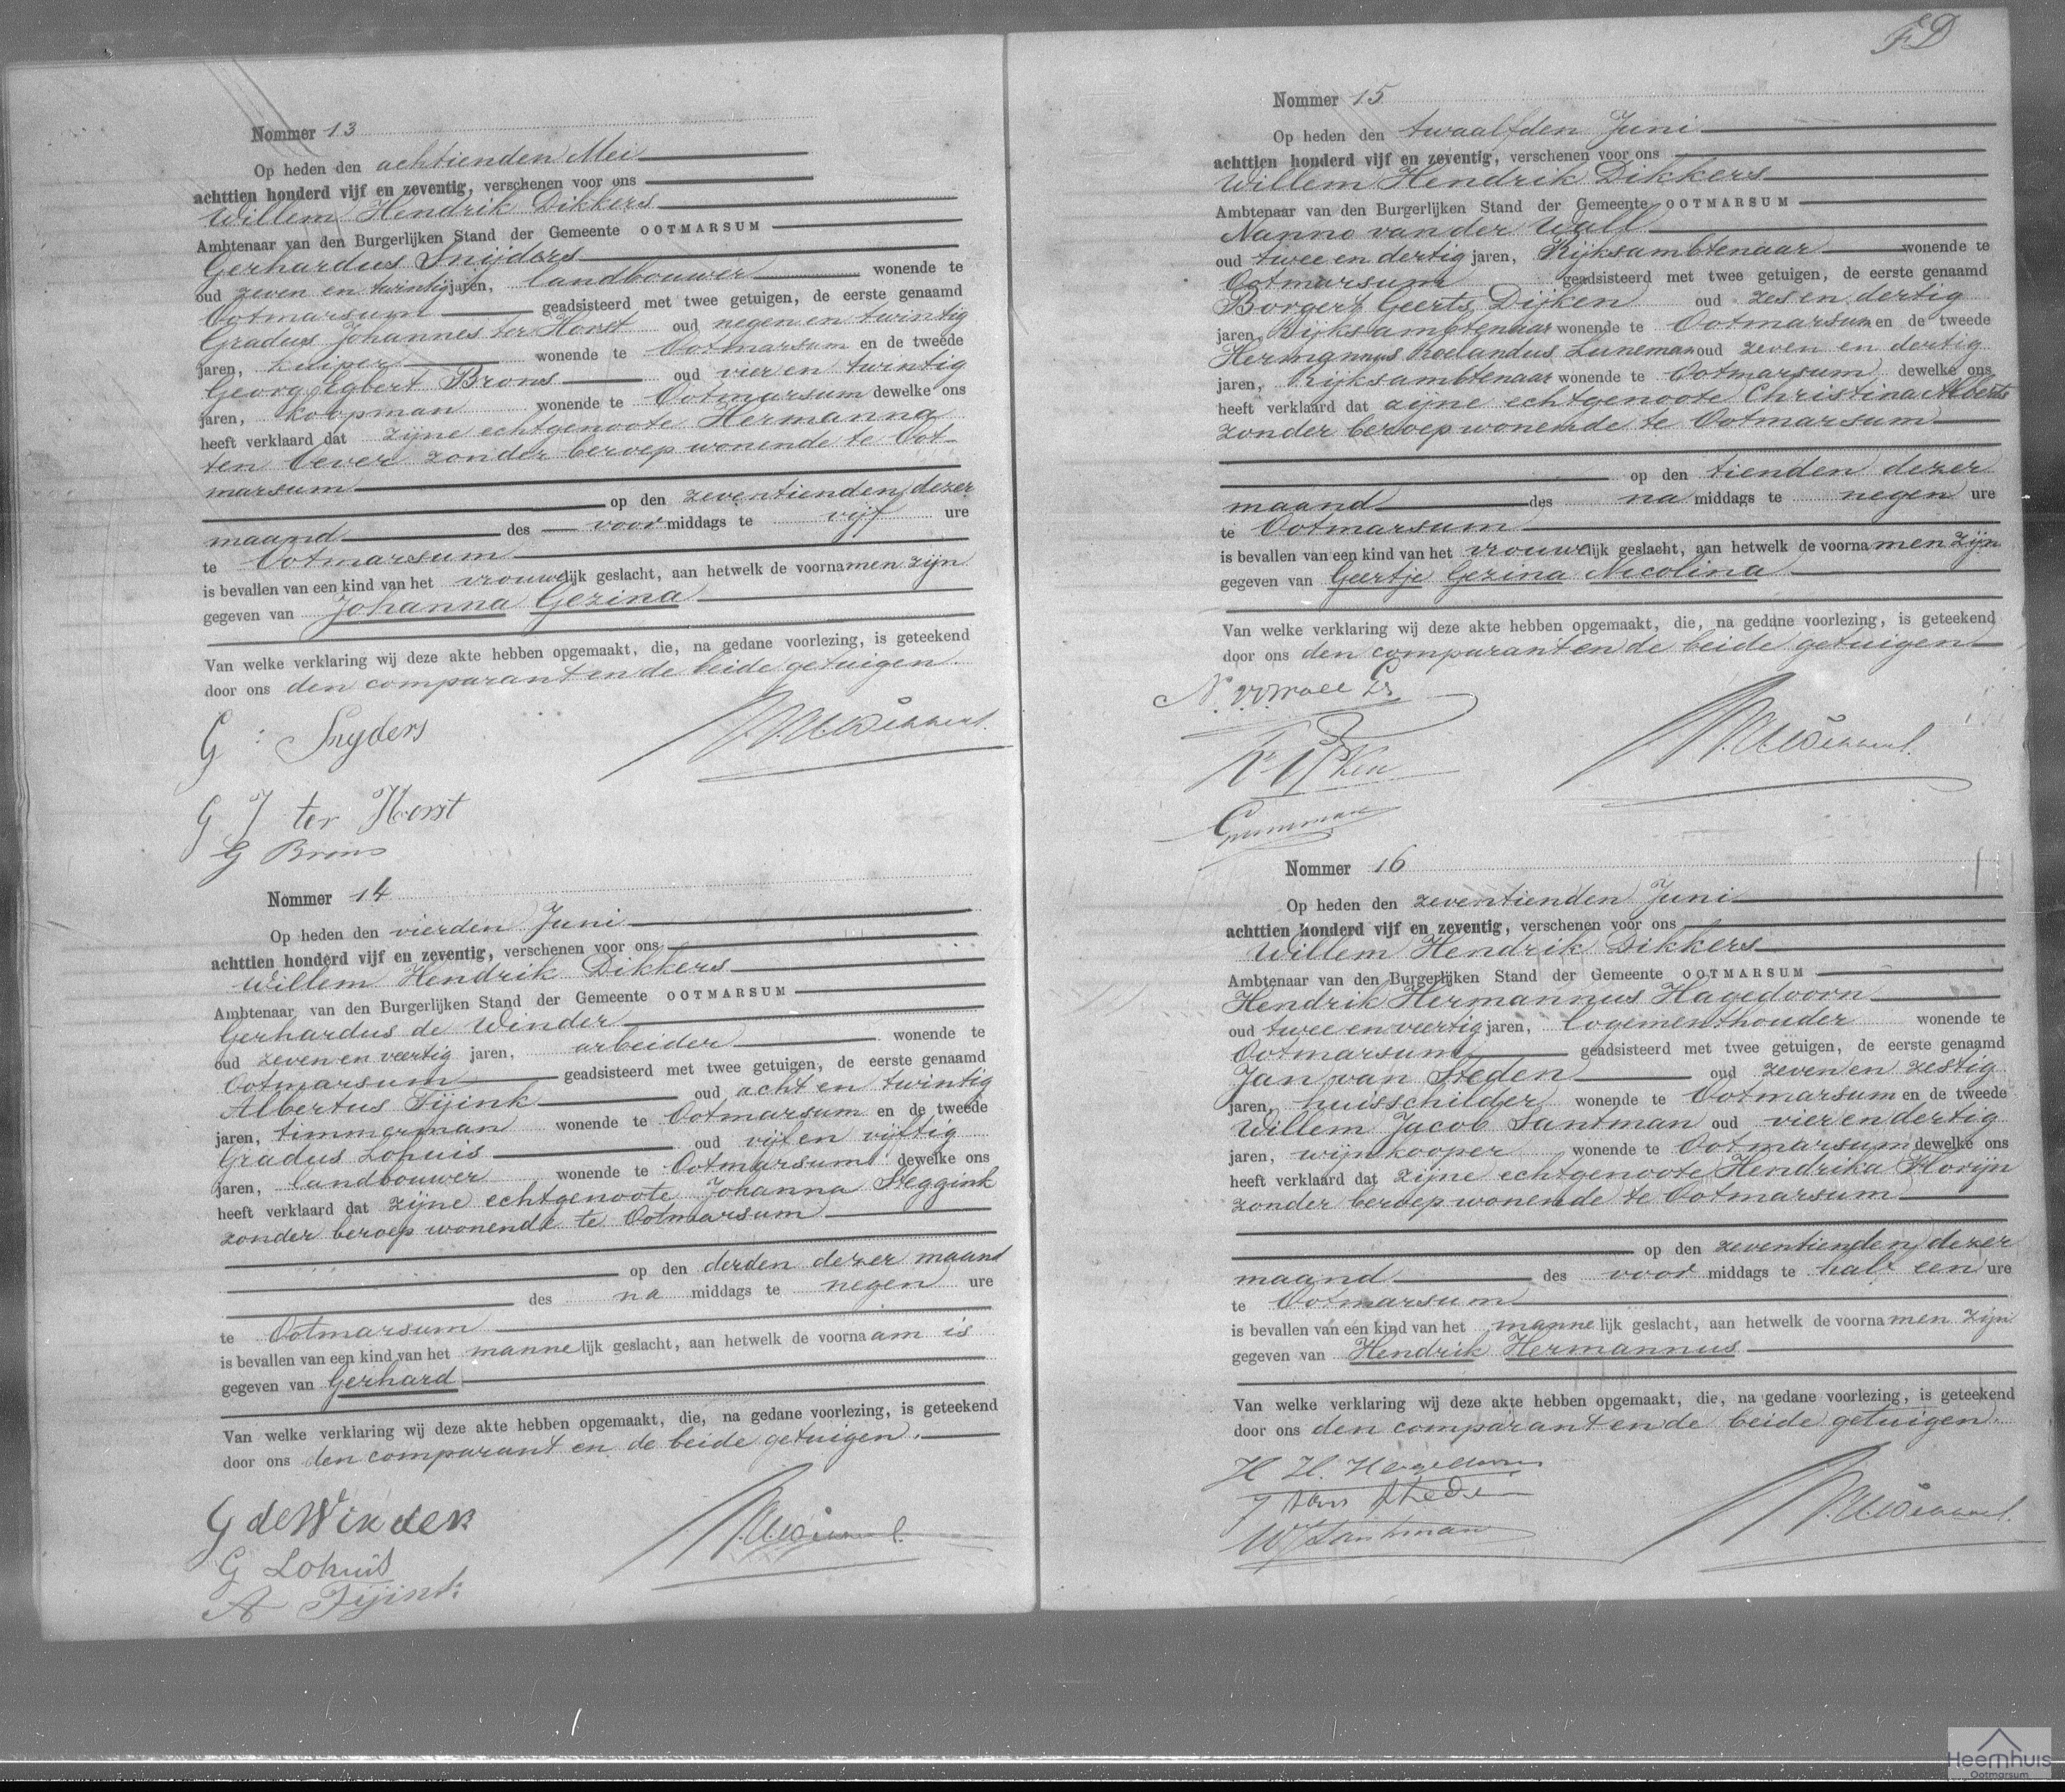 Nommer 13
Op heden den achtienden Mei
achttien honderd vijf en zeventig, verschenen voor ons
Willem Hendrik Dikkers
Ambtenaar van den Burgerlijken Stand der Gemeente OOTMARSUM
Gerhardus Snijders
oud zeven en twintig jaren, landbouwer wonende te
Ootmarsum geadsisteerd met twee getuigen, de eerste genaamd
Gradus Johannes ter Horst oud negen en twintig
jaren, kuiper wonende te Ootmarsum en de tweede
Georg Egbert Brons oud vier en twintig
jaren, koopman wonende te Ootmarsum dewelke ons
heeft verklaard dat zijne echtgenoote Hermanna
ten Oever zonder beroep wonende te Oot-
marsum
op den zeventienden dezer
maand des voor middags te vijf ure
te Ootmarsum
is bevallen van een kind van het vrouwelijk geslacht, aan hetwelk de voornamen zijn
gegeven van Johanna Gezina
Van welke verklaring wij deze akte hebben opgemaakt, die, na gedane voorlezing, is geteekend
door ons den comparant en de beide getuigen.
G: Snyders
G J ter Horst
G Brons
Nommer 14
Op heden den vierden Juni
achttien honderd vijf en zeventig, verschenen voor ons
Willem Hendrik Dikkers
Ambtenaar van den Burgerlijken Stand der Gemeente OOTMARSUM
Gerhardus de Winder
oud zeven en veertig jaren, arbeider wonende te
Ootmarsum geadsisteerd met twee getuigen, de eerste genaamd
Albertus Tijink oud acht en twintig
jaren, timmerman wonende te Ootmarsum en de tweede
Gradus Lohuis oud vijf en vijftig
jaren, landbouwer wonende te Ootmarsum dewelke ons
heeft verklaard dat zijne echtgenoote Johanna Steggink
zonder beroep wonende te Ootmarsum
op den derden dezer maand
des na middags te negen ure
te Ootmarsum
is bevallen van een kind van het mannelijk geslacht, aan hetwelk de voornaam is
gegeven van Gerhard
Van welke verklaring wij deze akte hebben opgemaakt, die, na gedane voorlezing, is geteekend
door ons den comparant en de beide getuigen.
G de Winder
G Lohuis
A Tijink
FD
Nommer 15
Op heden den twaalfden Juni
achttien honderd vijf en zeventig, verschenen voor ons
Willem Hendrik Dikkers
Ambtenaar van den Burgerlijken Stand der Gemeente OOTMARSUM
Nanno van der Wall
oud twee en dertig jaren, Rijksambtenaar wonende te
Ootmarsum geadsisteerd met twee getuigen, de eerste genaamd
Borgert Geerts Dijken oud zes en dertig
jaren, Rijksamgtenaar wonende te Ootmarsum en de tweede
Hermannus Roelandus Luneman oud zeven en dertig
jaren, Rijksambtenaar wonende te Ootmarsum dewelke ons
heeft verklaard dat zijne echtgenoote Christina Alberts
zonder beroep wonende te Ootmarsum
op den tienden dezer
maand des na middags te negen ure
te Ootmarsum
is bevallen van een kind van het vrouwelijk geslacht, aan hetwelk de voornamen zijn
gegeven van Geertje Gezina Nicolina
Van welke verklaring wij deze akte hebben opgemaakt, die, na gedane voorlezing, is geteekend
door ons den comparant en de beide getuigen
Nommer 16
Op heden den zeventienden Juni
achttien honderd vijf en zeventig, verschenen voor ons
Willem Hendrik Dikkers
Ambtenaar van den Burgerlijken Stand der Gemeente OOTMARSUM
Hendrik Hermannus Hagedoorn
oud twee en veertig jaren, logementhouder wonende te
Ootmarsum geadsisteerd met twee getuigen, de eerste genaamd
Jan van Steden oud zeven en zestig
jaren, huisschilder wonende te Ootmarsum en de tweede
Willem Jacob Santman oud vier en dertig
jaren, wijnkooper wonende te Ootmarsum dewelke ons
heeft verklaard dat zijne echtgenoote Hendrika Florijn
zonder beroep wonende te Ootmarsum
op den zeventienden dezer
maand des voor middags te half een ure
te Ootmarsum
is bevallen van een kind van het mannelijk geslacht, aan hetwelk de voornamen zijn
gegeven van Hendrik Hermannus
Van welke verklaring wij deze akte hebben opgemaakt, die, na gedane voorlezing, is geteekend
door ons den comparant en de beide getuigen.
H H. Hagedoorn
J van Steden
WJ Santman
Heemhuis
Ootmarsum